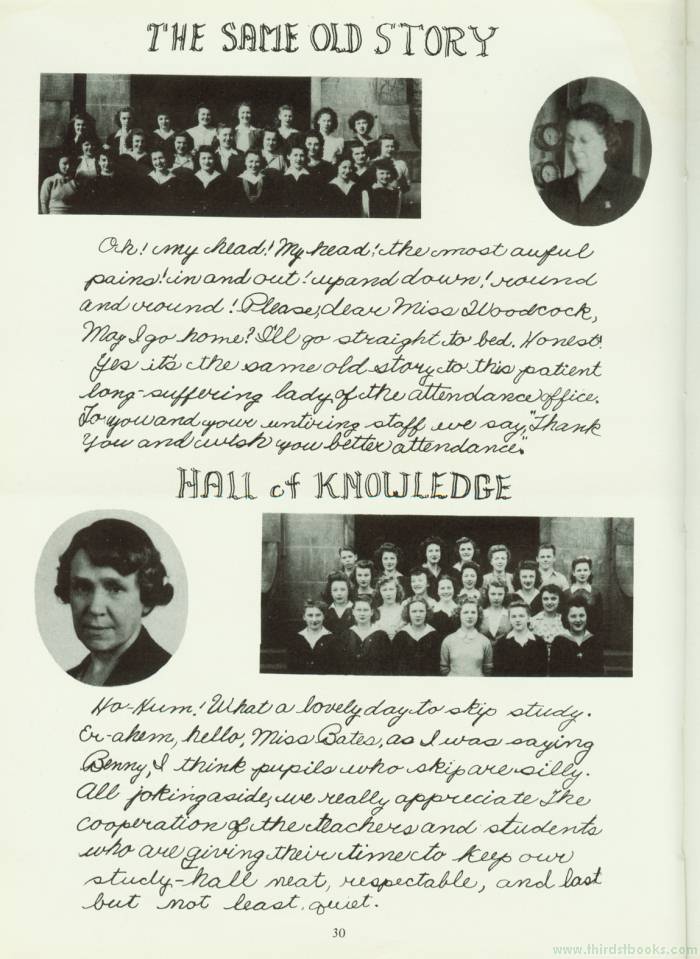 THE SAME OLD STORY
Oh! my head! My head! the most awful
pains! in and out! up and down! round
and round! Please, dear Miss Woodcock,
May I go home? I'll go straight to bed. Honest!
Yes it's the same old story to this patient
long-suffering lady of the attendance office.
To you and your untiring staff we say, "Thank
You and wish you better attendance."
HALL of KNOWLEDGE
Ho-Hum! What a lovely day to skip study.
Er-ahem, hello, Miss Bates, as I was saying
Benny, I think pupils who skip are silly.
All joking aside, we really appreciate The
cooperation of the teachers and students
who are giving their time to keep our
study-hall neat, respectable, and last
but not least, quiet.
30
www.thirdstbooks.com